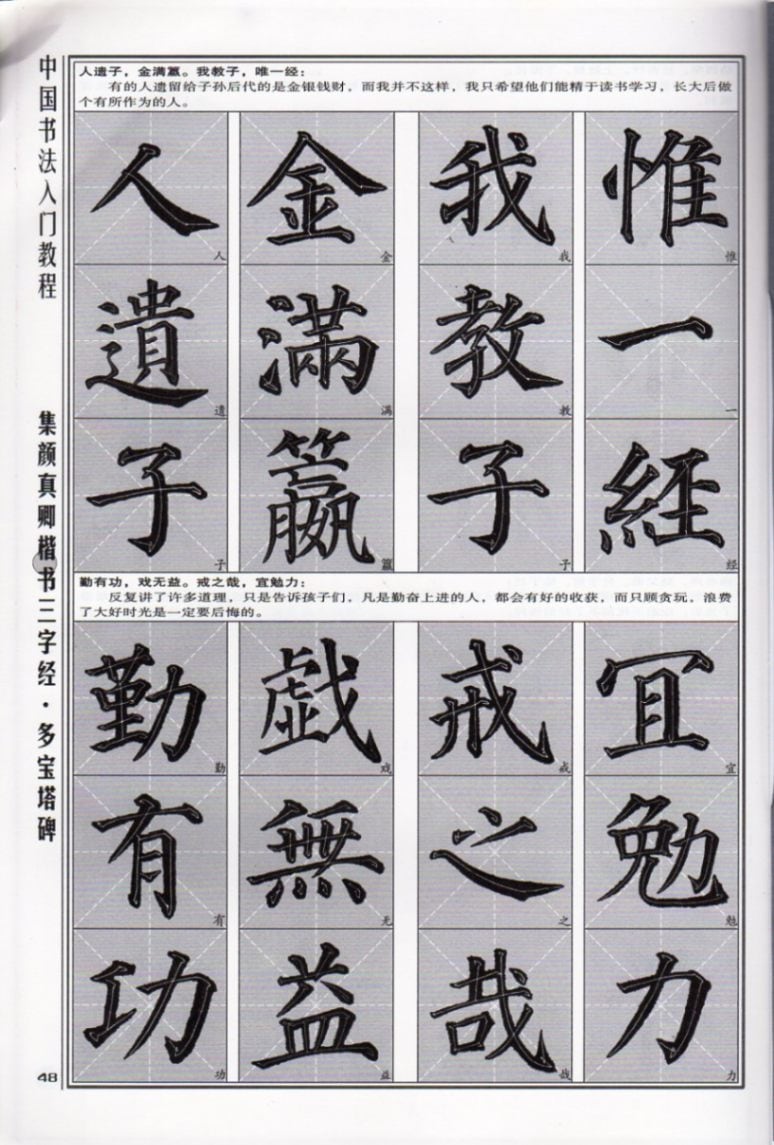 中国书法入门教程
集颜真卿楷书三字经·多宝塔碑
48
人遗子，金满籝。我教子，唯一经：
有的人遗留给子孙后代的是金银钱财，而我并不这样，我只希望他们能精于读书学习，长大后做
个有所作为的人。
人 金 我 惟
人 金 我 惟
遺 滿 教 一
遗 满 教 一
子 籝 子 經
子 籝 子 经
勤有功，戏无益。戒之哉，宜勉力：
反复讲了许多道理，只是告诉孩子们，凡是勤奋上进的人，都会有好的收获，而只顾贪玩，浪费
了大好时光是一定要后悔的。
勤 戯 戒 宜
勤 戏 戒 宜
有 無 之 勉
有 无 之 勉
功 益 哉 力
功 益 哉 力